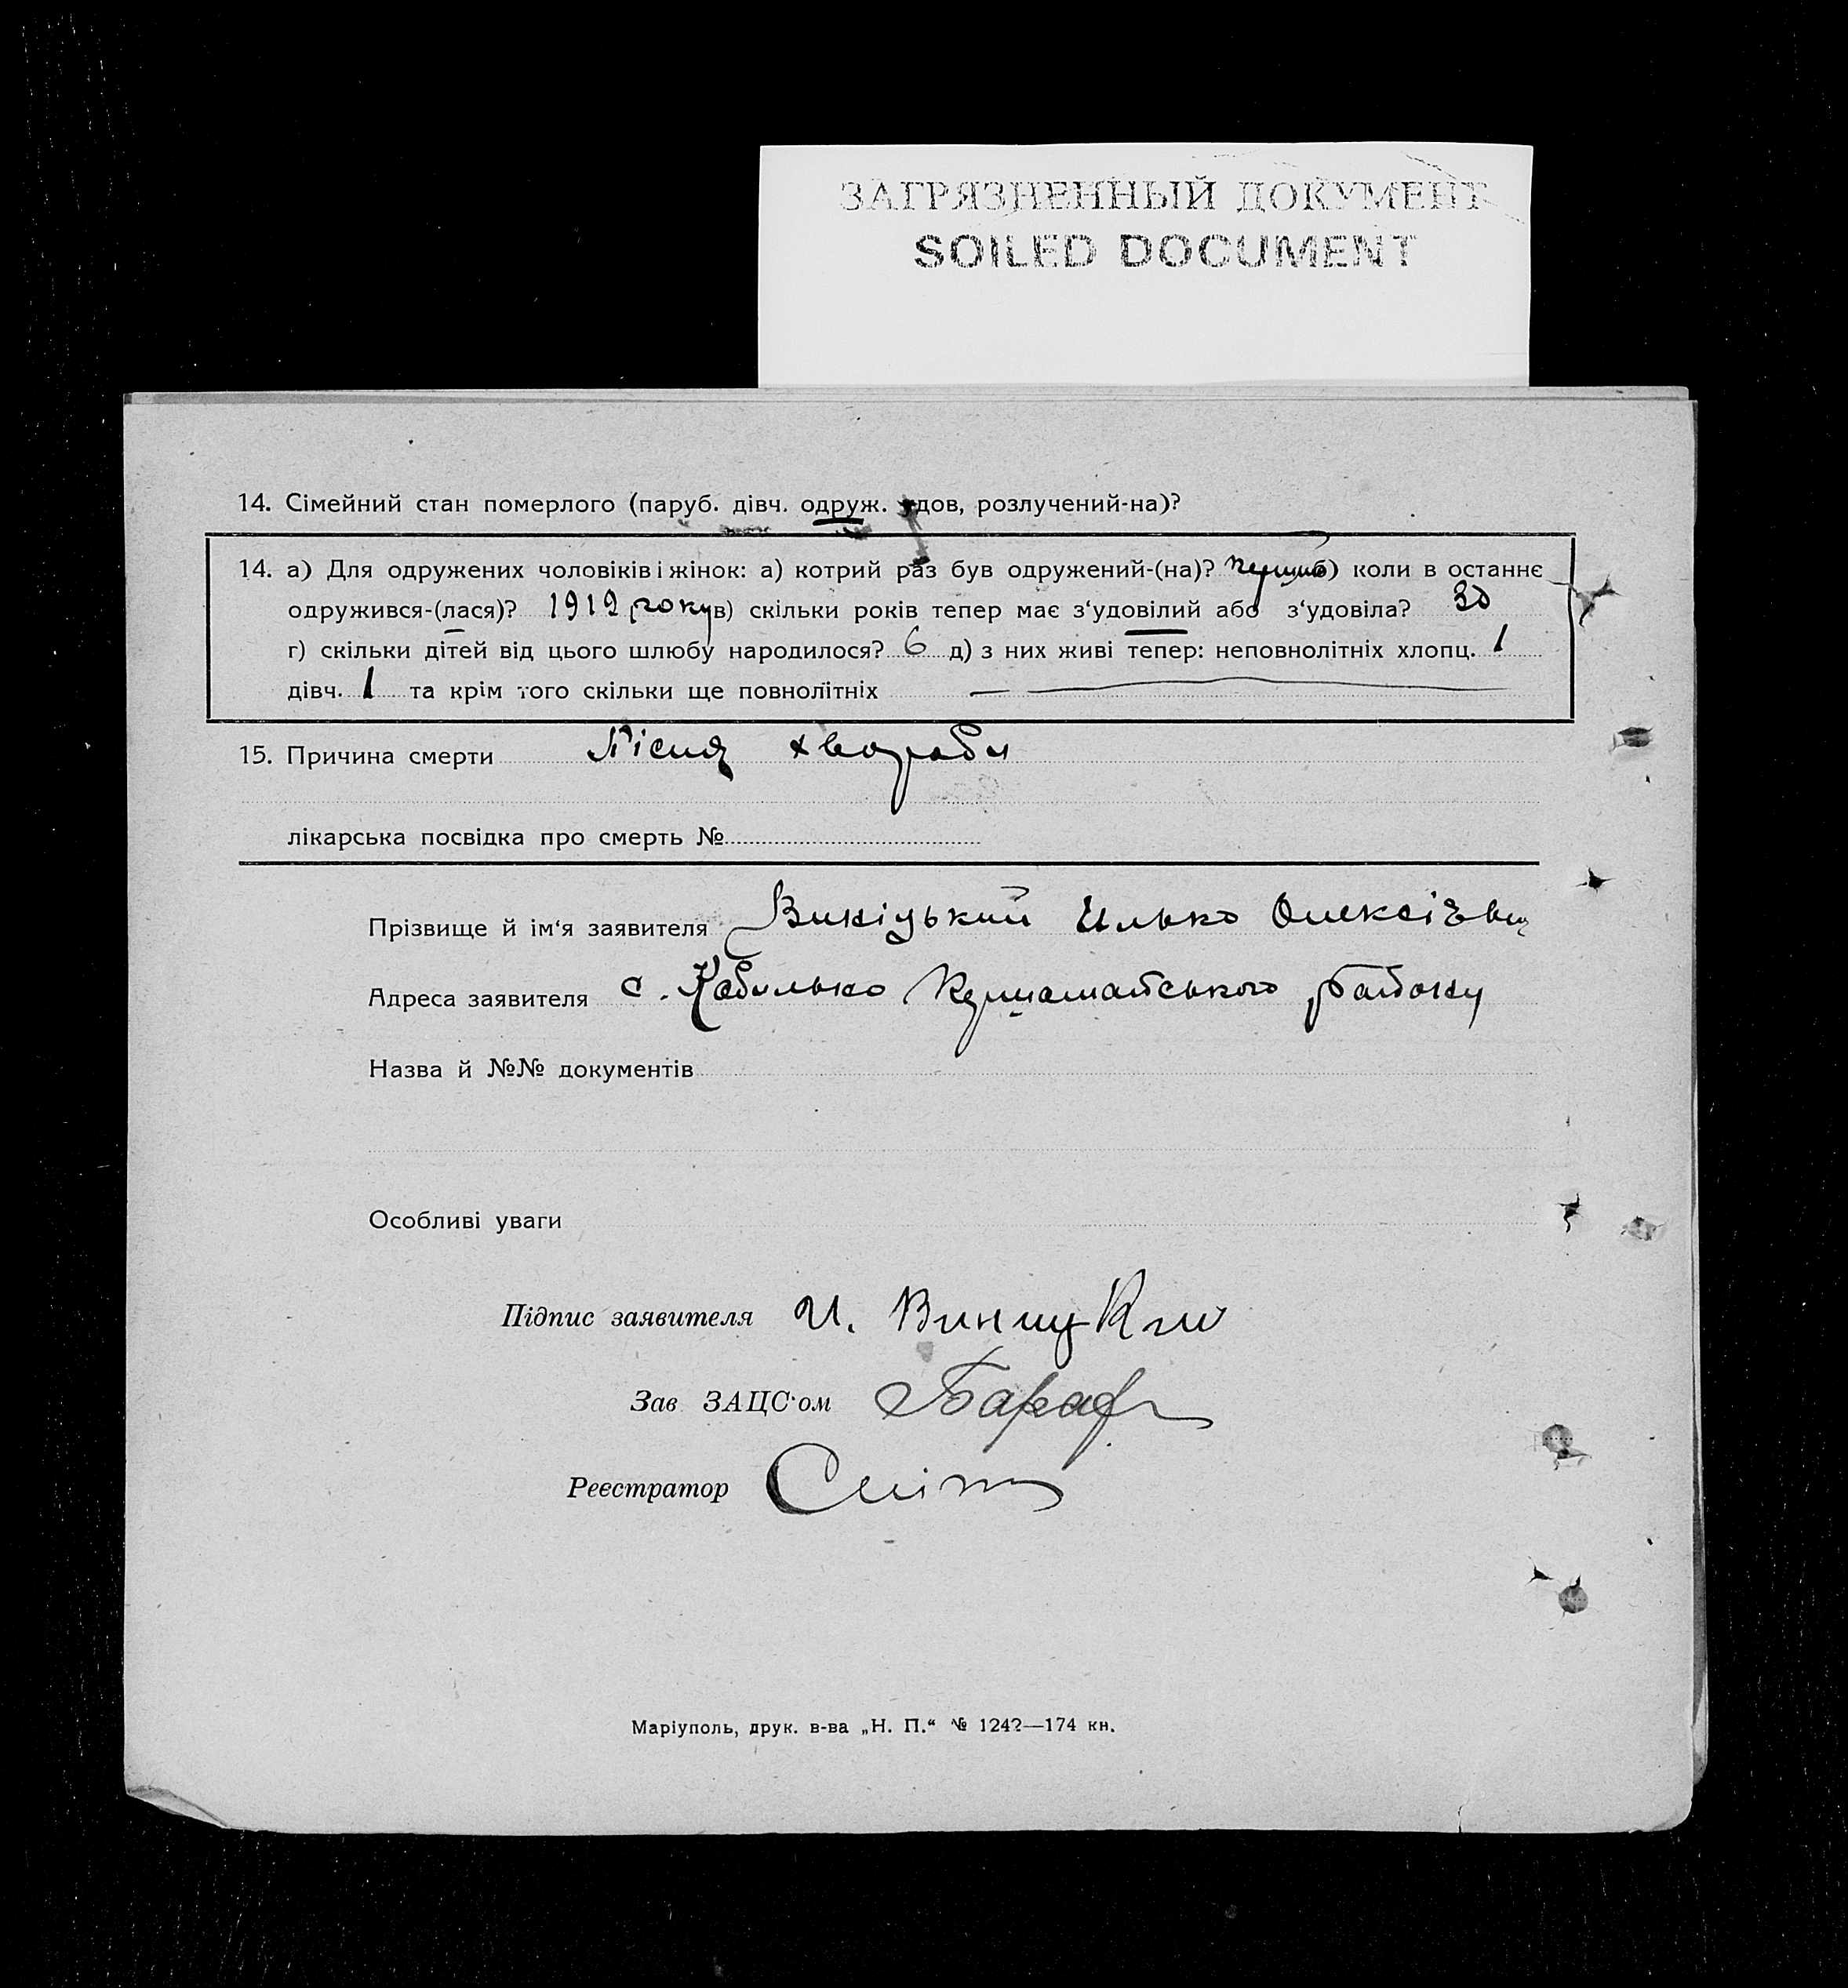 ЗАГРЯЗНЕННЫЙ ДОКУМЕНТ
SOILED DOCUMENT
14. Сімейний стан померлого (паруб. дівч. одруж. удов, розлучений-на)?
14. а) Для одружених чоловіків і жінок: а) котрий раз був одружений-(на)? перший б) коли в останнє
одружився-(лася)? 1912 року в) скільки років тепер має з‘удовілий або з‘удовіла? 30
г) скільки дітей від цього шлюбу народилося? 6 д) з них живі тепер: неповнолітніх хлопц. 1
дівч. 1 та крім того скільки ще повнолітніх —
15. Причина смерти Після хвораби
лікарська посвідка про смерть №
Прізвище й ім‘я заявителя Виніцький Илько Олексієвич
Адреса заявителя с. Кобилько района
Назва й №№ документів
Особливі уваги
Підпис заявителя И. Виницкий
Зав ЗАЦС‘ом
Реєстратор
Маріуполь, друк. в-ва „Н. П.“ № 1242—174 кн.